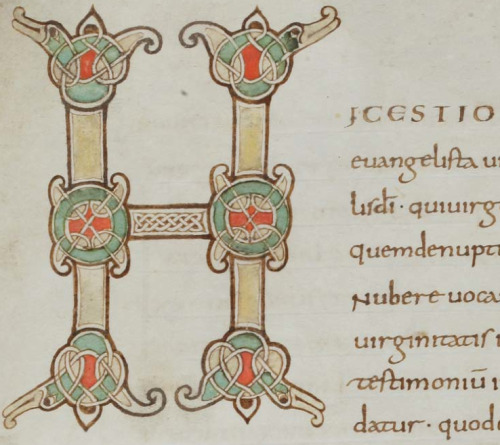 H
ICESTIO
euangelista u
lisdi · quiuirg
quemdenupti
Nubere uoca
uirginitatis i
testimoniū i
datur · quod